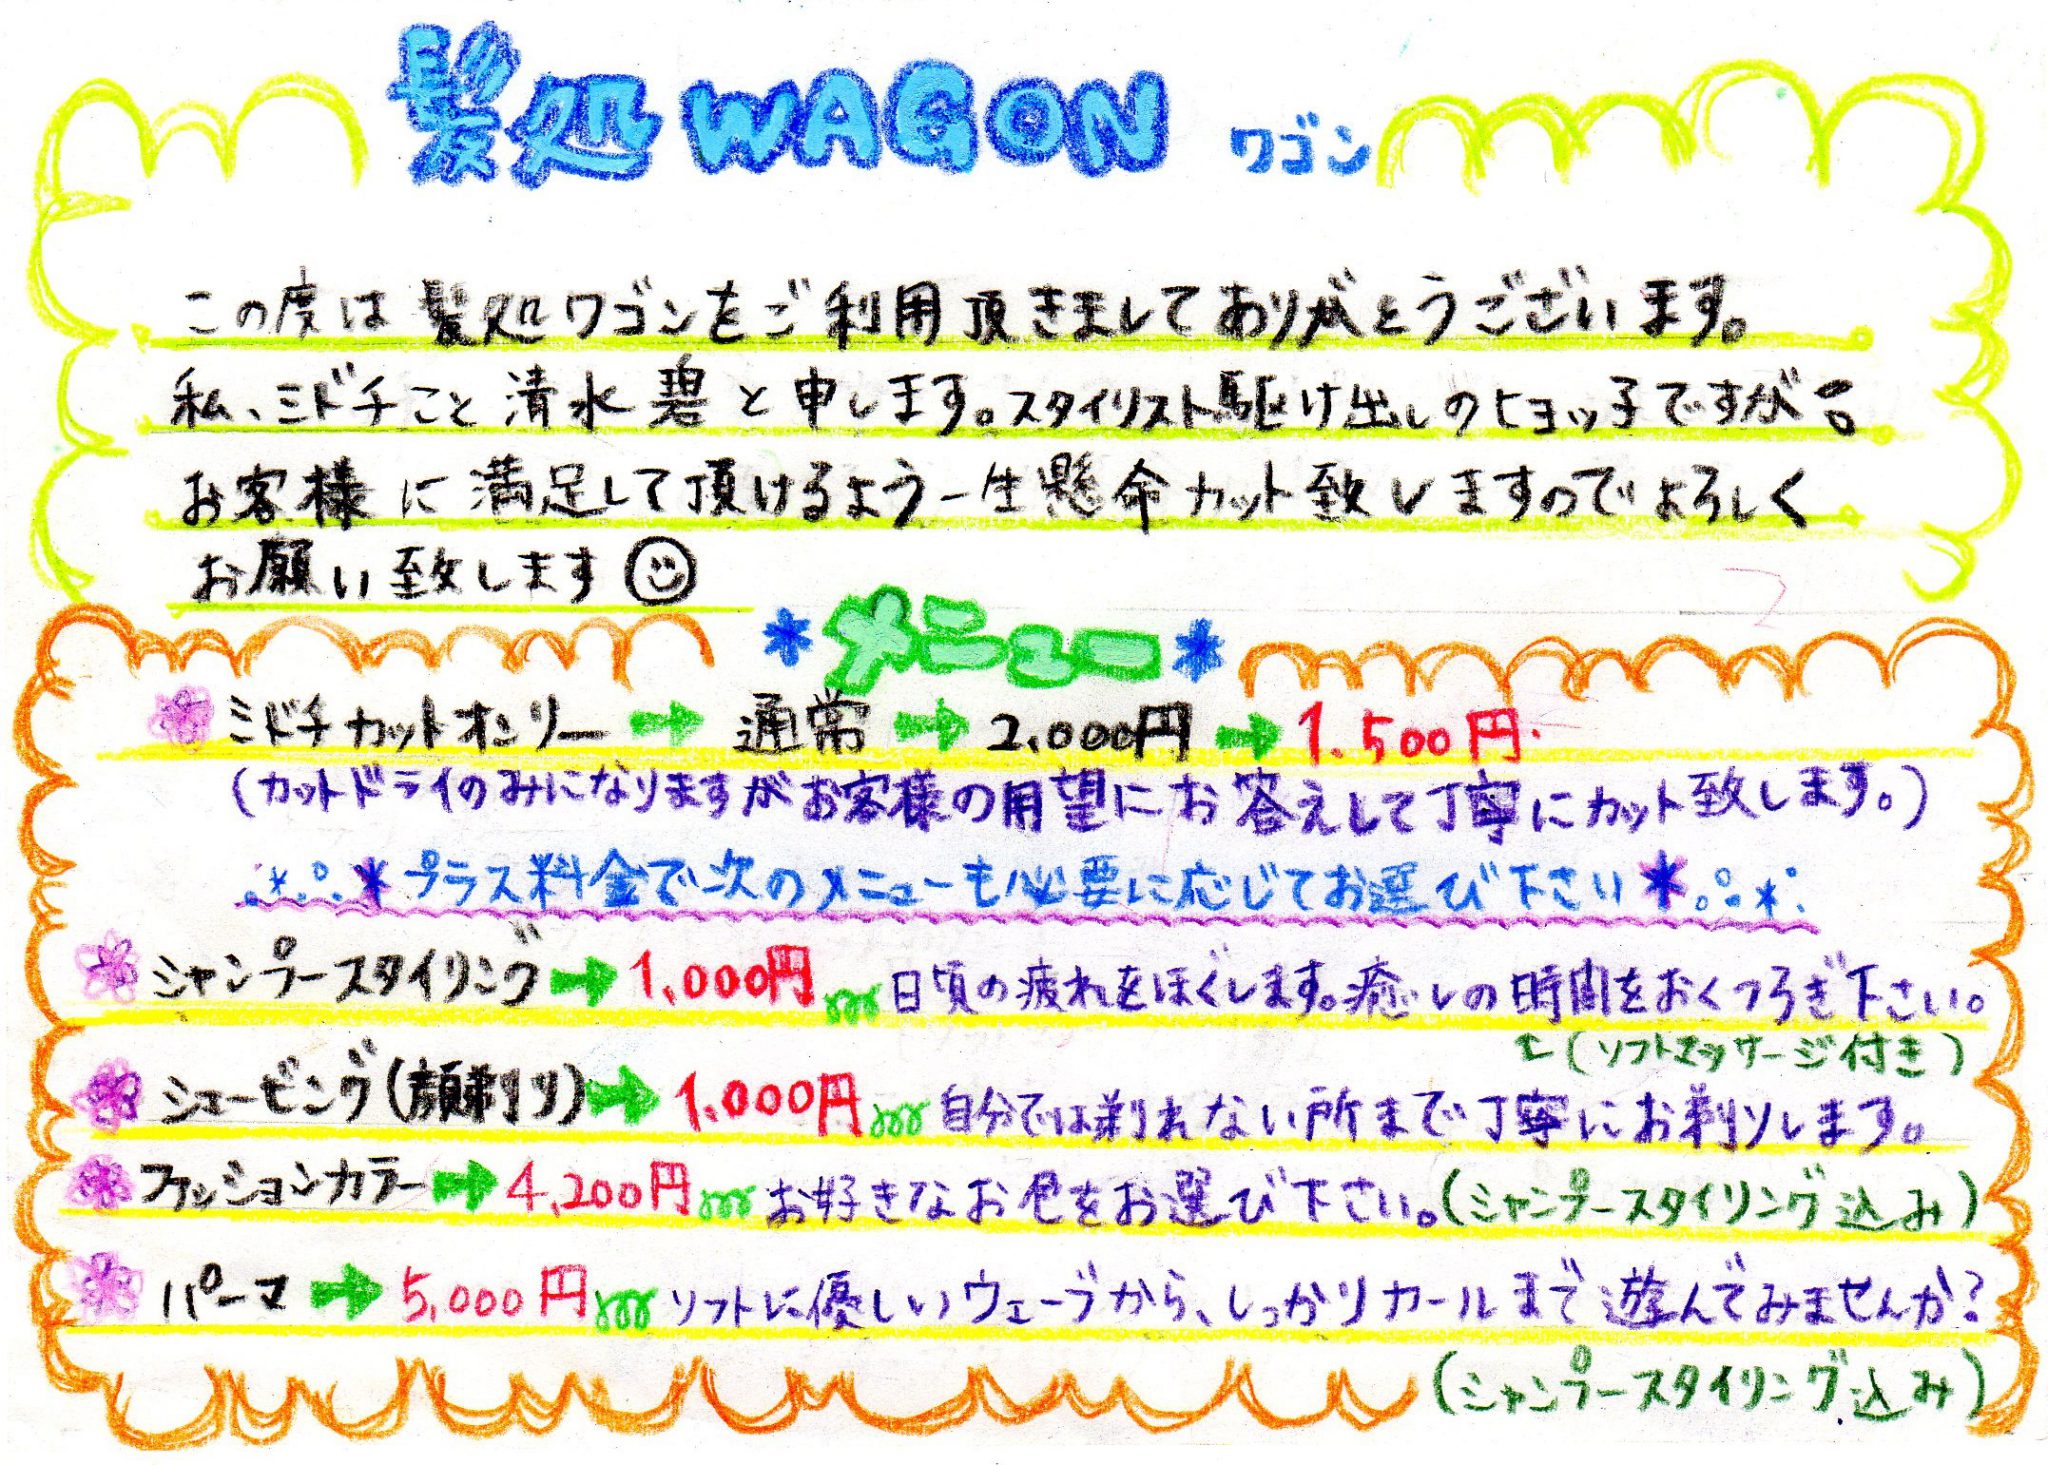 髪処 WAGON ワゴン
この度は髪処ワゴンをご利用頂きましてありがとうございます。
私、ミドチこと清水碧と申します。スタイリスト駆け出しのヒヨッ子ですが
お客様に満足して頂けるよう一生懸命カット致しますのでよろしく
お願い致します
*メニュー*
ミドチカットオンリー→通常→2,000円→1.500円
(カットドライのみになりますがお客様の用望にお答えして丁寧にカット致します。)
*プラス料金で次のメニューも必要に応じてお選び下さい*
シャンプースタイリング→1,000円 日頃の疲れをほぐします。癒しの時間をおくつろぎ下さい。
(ソフトマッサージ付き)
シェービング(顔剃り)→1,000円 自分では剃れない所まで丁寧にお剃りします。
ファッションカラー→4,200円 お好きなお色をお選び下さい。(シャンプースタイリング込み)
パーマ→5,000円 ソフトに優しいウェーブから、しっかりカールまで遊んでみませんか?
(シャンプースタイリング込み)